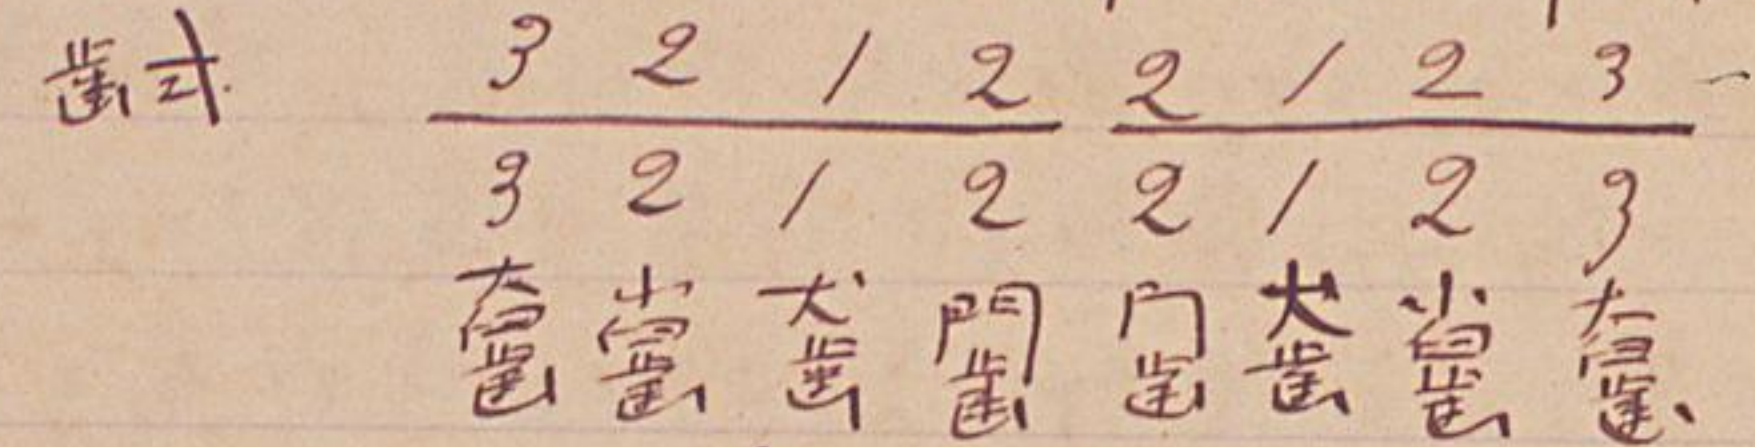 歯式 3 2 1 2 2 1 2 3
3 2 1 2 2 1 2 3
大臼歯 小臼歯 犬歯 門歯 门歯 犬歯 小臼歯 大臼歯